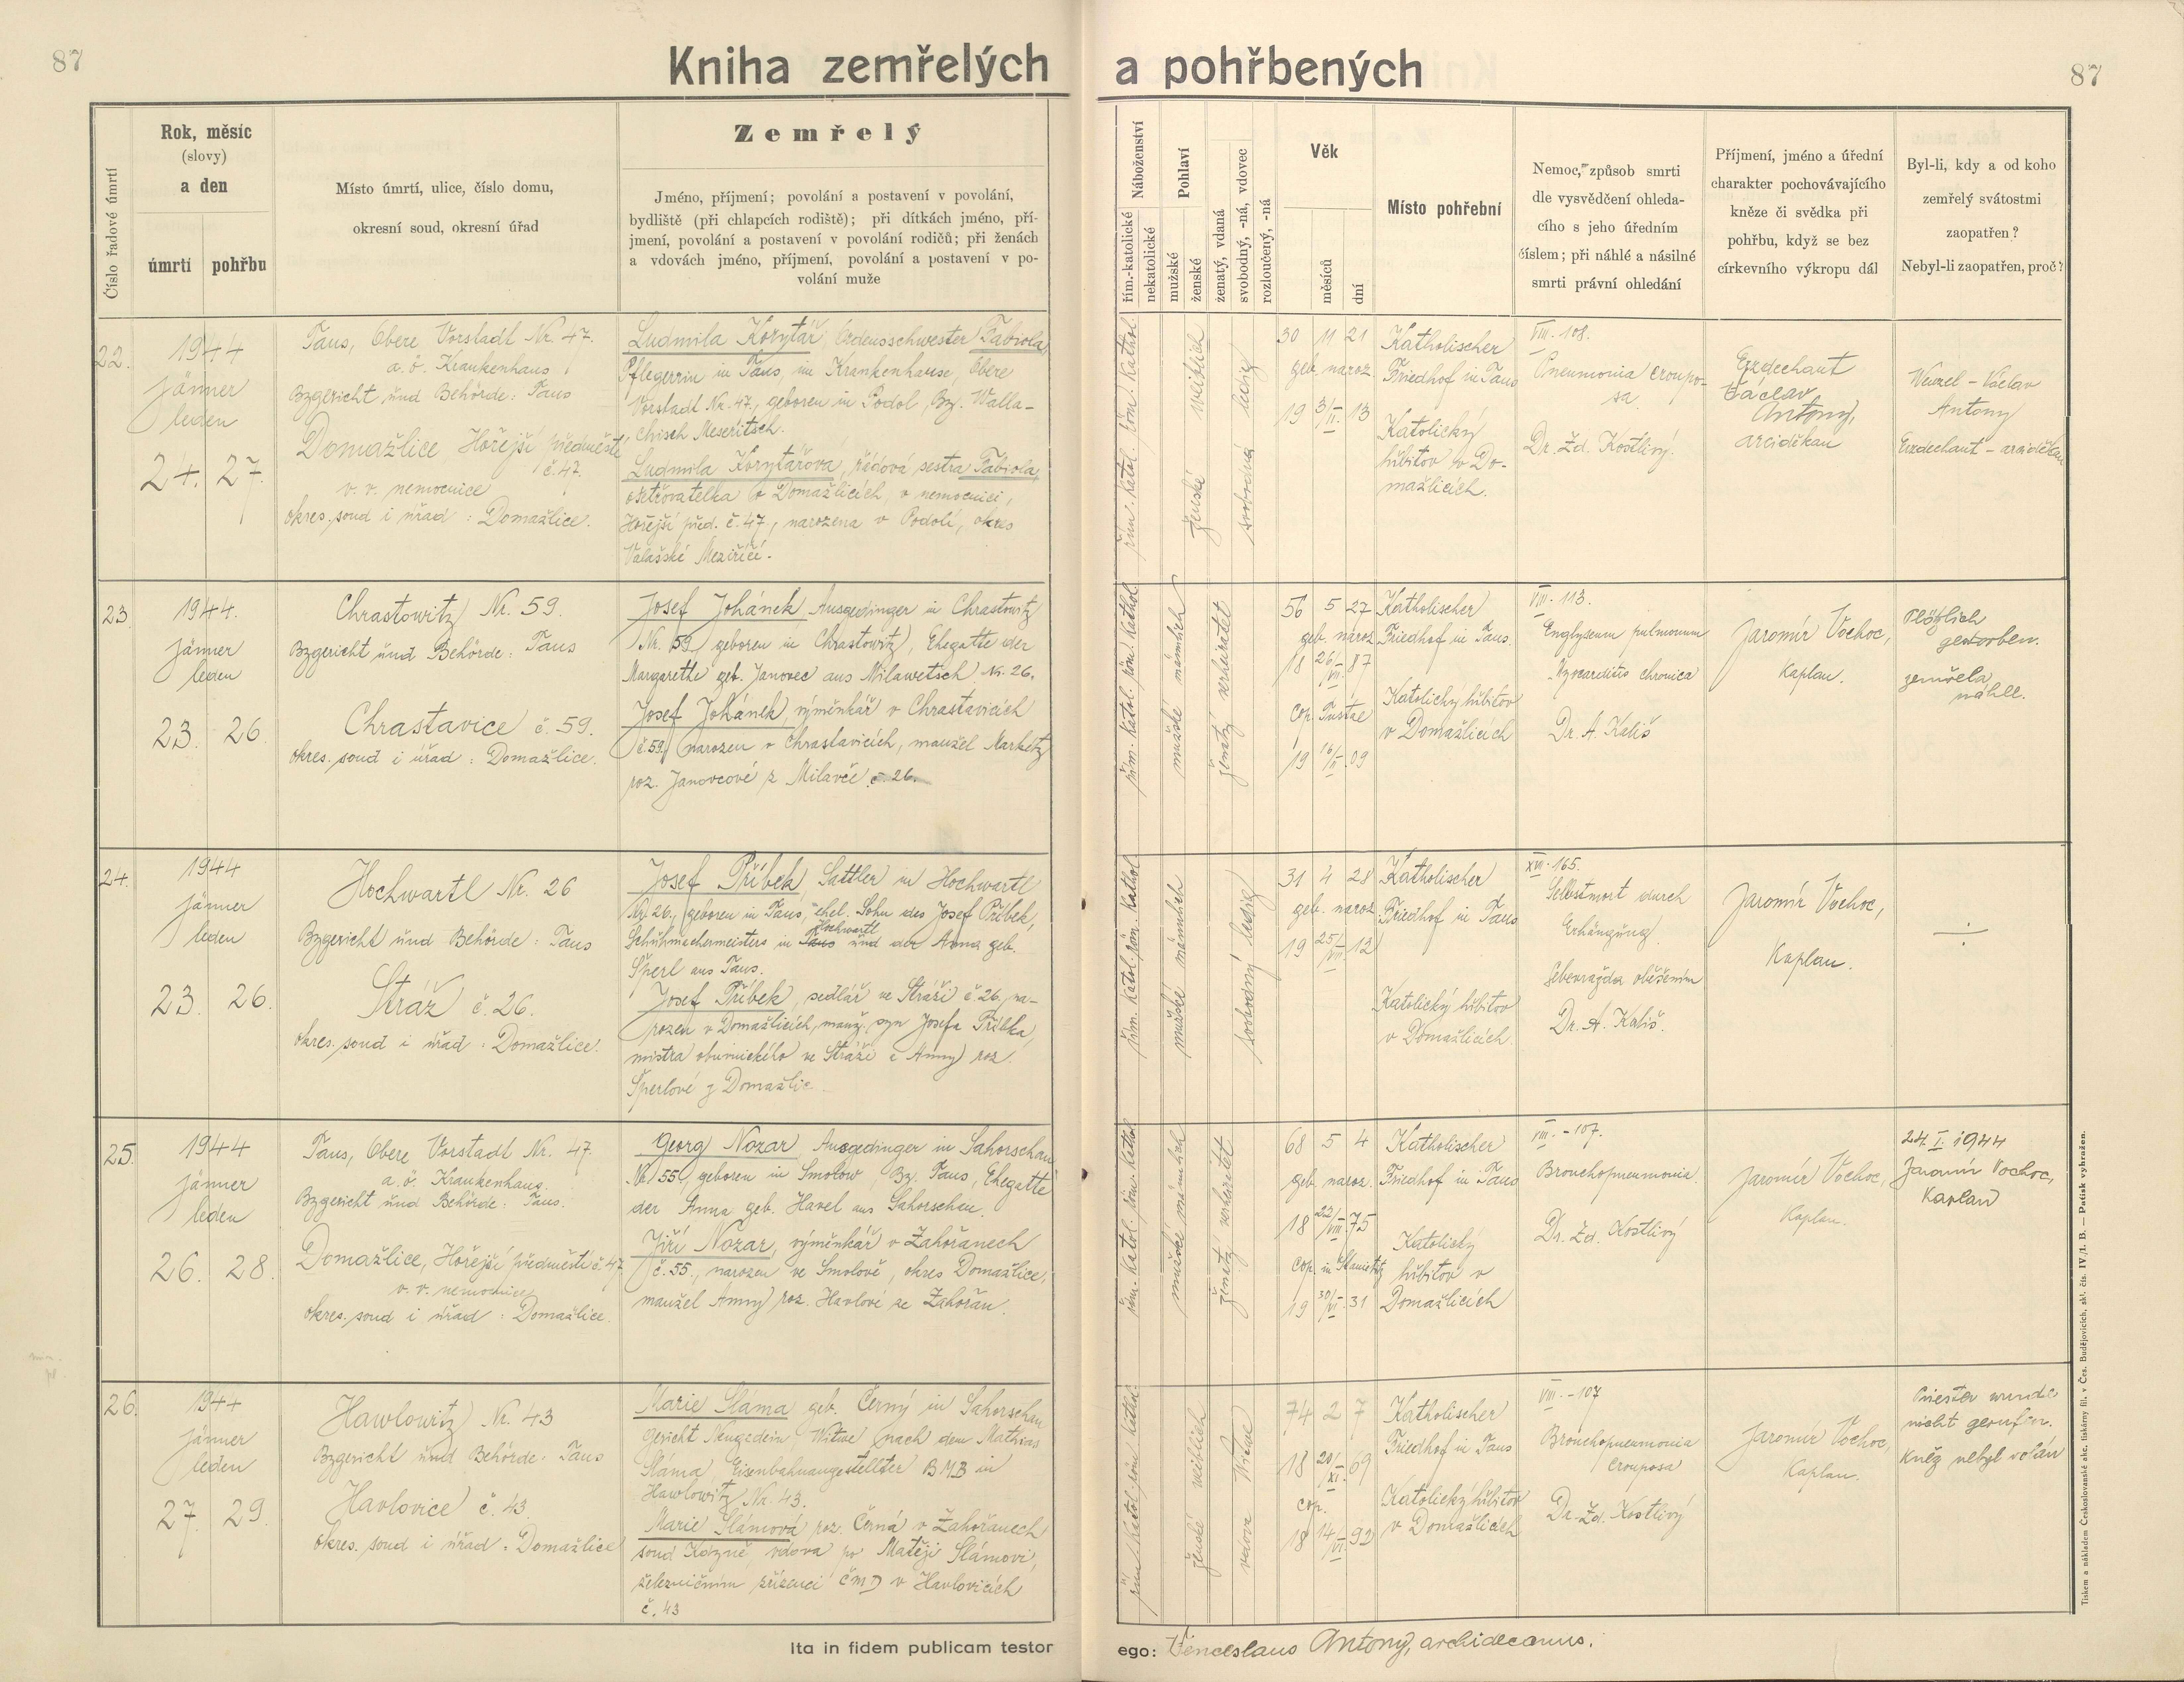 87
Kniha zemřelých a pohřbených
87
Číslo řadové úmrtí
Rok, měsíc
(slovy)
a den
úmrtí
pohřbu
Místo úmrtí, ulice, číslo domu,
okresní soud, okresní úřad
Zemřelý
Jméno, příjmení; povolání a postavení v povolání,
bydliště (při chlapcích rodiště); při dítkách jméno, pří-
jmení, povolání a postavení v povolání rodičů; při ženách
a vdovách jméno, příjmení, povolání a postavení v po-
volání muže
Náboženství
řím.-katolické
nekatolické
Pohlaví
mužské
ženské
ženatý, vdaná
svobodný, -ná, vdovec
rozloučený, -ná
Věk
měsíců
dní
Místo pohřební
Nemoc, způsob smrti
dle vysvědčení ohleda-
cího s jeho úředním
číslem; při náhlé a násilné
smrti právní ohledání
Příjmení, jméno a úřední
charakter pochovávajícího
kněze či svědka při
pohřbu, když se bez
církevního výkropu dál
Byl-li, kdy a od koho
zemřelý svátostmi
zaopatřen?
Nebyl-li zaopatřen, proč?
22.
1944
Jänner
leden
24. 27.
Taus, Obere Vorstadt Nr. 47.
a. ö. Krankenhaus
Bzgericht und Behörde: Taus
Domažlice, Hořejší předměstí
č. 47.
v. v. nemocnice
okres. soud i úřad: Domažlice.
Ludmila Korytář, Ordensschwester Fabiola,
Pflegerin in Taus, im Krankenhause, Obere
Vorstadt Nr. 47., geboren in Podol, Bz. Walla-
chisch Meseritsch.
Ludmila Korytářova, řádová sestra Fabiola,
ošetřovatelka v Domažlicích, v nemocnici,
Hořejší před. č. 47, narozena v Podolí, okres
Valašské Meziříčí.
řím. katol. röm. kathol.
ženské weiblich
svobodná ledig
30 11 21
geb. naroz.
19 3/II. 13
Katholischer
Friedhof in Taus
Katolický
hřbitov v Do-
mažlicích.
VIII. 108.
Pneumonia croupo-
sa
Dr. Zd. Kostlivý.
Erzdechant
Václav
Antony,
arciděkan
Wenzel - Václav
Antony
Erzdechant - arciděkan
23.
1944.
Jänner
leden
23. 26.
Chrastowitz Nr. 59.
Bzgericht und Behörde: Taus
Chrastavice č. 59.
okres. soud i úřad: Domažlice.
Josef Johánek, Ausgedinger in Chrastowitz
Nr. 59, geboren in Chrastowitz, Ehegatte der
Margarethe geb. Janovec aus Milawetsch Nr. 26.
Josef Johánek, výměnkář v Chrastavicích
č. 59, narozen v Chrastavicích, manžel Markéty
roz. Janovcové z Milavče č. 26.
řím. katol. röm. kathol.
mužské männlich
ženatý verheiratet
56 5 27
geb. naroz.
18 26/VII. 87
cop. Tustae
19 16/II. 09
Katholischer
Friedhof in Taus.
Katolický hřbitov
v Domažlicích
VIII. 113.
pulmonum
chronica
Dr. A. Kališ
Jaromír Vochoc,
Kaplan.
Plötzlich
gestorben.
zemřela
náhle.
24.
1944
Jänner
leden
23. 26.
Hochwartl Nr. 26
Bzgericht und Behörde: Taus
Stráž č. 26.
okres. soud i úřad: Domažlice.
Josef Příbek, Sattler in Hochwartl
Nr. 26., geboren in Taus, ehel. Sohn des Josef Příbek,
Hochwartl
Schuhmachermeisters in Taus und der Anna geb.
Šperl aus Taus.
Josef Příbek, sedlář ve Stráži č. 26, na-
rozen v Domažlicích, manž. syn Josefa Příbka,
mistra obuvnického ve Stráži a Anny roz.
Šperlové z Domažlic
řím. katol. röm. kathol.
mužské männlich
svobodný ledig
31 4 28
geb. naroz.
19 25/VIII. 12
Katholischer
Friedhof in Taus
Katolický hřbitov
v Domažlicích.
XVII. 165.
Selbstmort durch
Erhängung.
Sebevražda oběšením
Dr. A. Kališ.
Jaromír Vochoc,
Kaplan.
25.
1944
Jänner
leden
26. 28.
Taus, Obere Vorstadt Nr. 47.
a. ö. Krankenhaus.
Bzgericht und Behörde: Taus.
Domažlice, Hořejší předměstí č. 47.
v. v. nemocnice
okres. soud i úřad: Domažlice.
Georg Nozar, Ausgedinger in Sahorschan
Nr. 55, geboren in Smolow, Bz. Taus, Ehegatte
der Anna geb. Havel aus Sahorschan.
Jiří Nozar, výměnkář v Zahořanech
č. 55., narozen ve Smolově, okres Domažlice,
manžel Anny roz. Havlové ze Zahořan.
řím. katol. röm. kathol.
mužské männlich
ženatý verheiratet
68 5 4
geb. naroz.
18 22/VIII. 75
cop. in Stanietitz
19 30/VI. 31
Katholischer
Friedhof in Taus
Katolický
hřbitov v
Domažlicích
VIII. - 107.
Bronchopneumonia.
Dr. Zd. Kostlivý
Jaromír Vochoc,
Kaplan.
24. I. 1944
Jaromír Vochoc,
Kaplan
26.
1944
Jänner
leden
27. 29.
Hawlowitz Nr. 43
Bzgericht und Behörde: Taus
Havlovice č. 43
okres. soud i úřad: Domažlice
Marie Sláma geb. Černý in Sahorschan
Gericht Neugedein, Witwe nach dem Mathias
Sláma, Eisenbahnangestellter BMB in
Hawlowitz Nr. 43.
Marie Slámová roz. Černá v Zahořanech
soud Kdyně, vdova po Matěji Slámovi,
železničním zřízenci ČMD v Havlovicích
č. 43
řím. katol. röm. kathol.
ženské weiblich
vdova Witwe
74 2 7
18 20/XI. 69
cop.
18 14/VI. 92
Katholischer
Friedhof in Taus
Katolický hřbitov
v Domažlicích
VIII. - 107
Bronchopneumonia
crouposa
Dr. Zd. Kostlivý
Jaromír Vochoc,
Kaplan.
Priester wurde
nicht gerufen.
Kněz nebyl volán
Ita in fidem publicam testor
ego: Venceslaus Antony, archidecanus.
Tiskem a nákladem Československé akc. tiskárny fil. v Čes. Budějovicích, skl. čís. IV/1. B. — Patisk vyhražen.